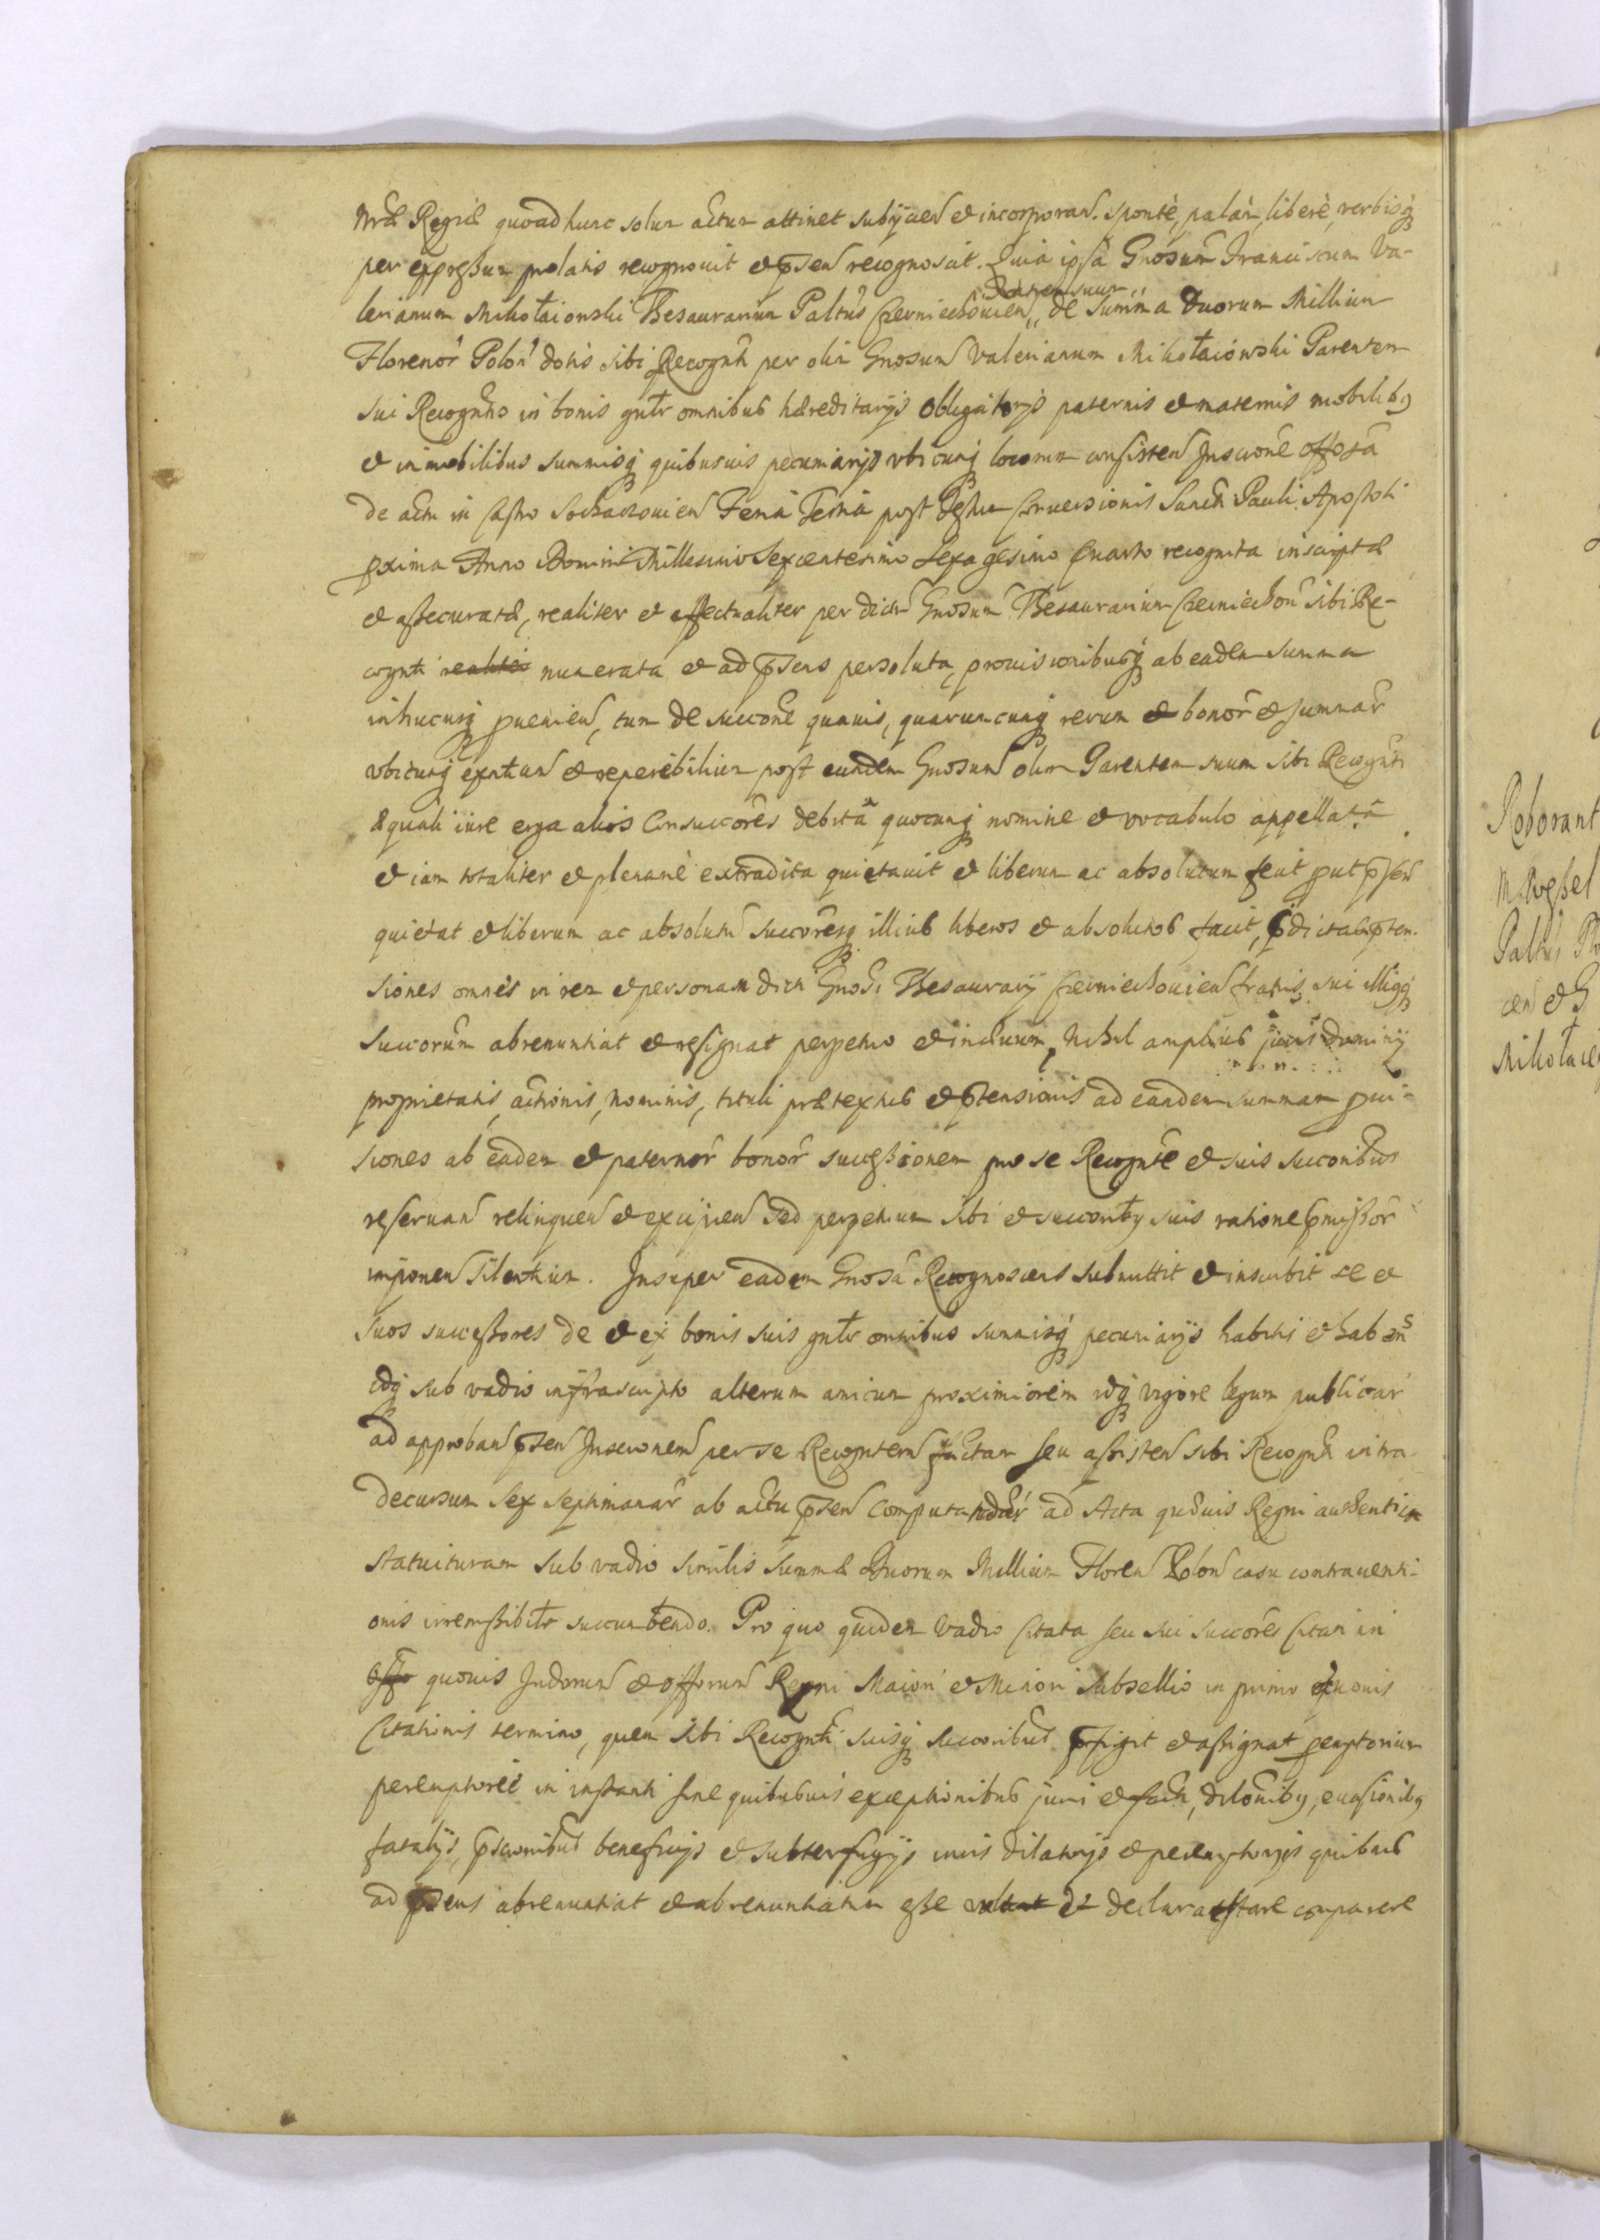 Nrae Regiae quoad hunc solum actum attinet subijcien et incorporan. sponte, palam, libere, verbisq
per expressum prolatis recognovit et psen recognoscit. Quia ipsa Gnosum Franciscum Va-
Fratrem suum
lerianum Mikołaiowski Thesaurarium Paltus Czerniechovien, de summa Duorum Millium
Florenor Polon dotis sibi Recognti per olim Gnosum Valerianum Mikołaiowski Parentem
sui Recogntis in bonis gnlr omnibus haereditarijs obligatorijs paternis et maternis mobilibq
et immobilibus summisq quibusvis pecuniarijs ubicunq locorum consisten Inscrone offosa
de actu in Castro Sochaczovien Feria Tertia post Festum Conversionis Sancti Pauli Apostoli
pxima Anno Domini Millesimo Sexcentesimo Sexagesimo Quarto recognita inscripta
et assecurata, realiter et effectualiter per dictum Gnosum Thesaurarium Czerniechovien sibi Re-
cognti realiter numerata et ad psens persoluta, provisionibusq ab eadem summa
inhucusq pvenien, tum de succone quavis, quaruncunq rerum et bonor et summar
ubicunq extan et reperibilium post eundem Gnosum olim Parentem suum sibi Recognti
aequali iure erga alios Consuccores debita quocunq nomine et vocabulo appellata
et iam totaliter et plenarie extradita quietavit et liberum ac absolutum fecit put psen
quietat et liberum ac absolutum succoresq illius liberos et absolutos facit, pdictasq pten-
siones omnes in rem et personam dicti Gnosi Thesaurarij Czerniechovien fratris sui illiusq
Succorum abrenuntiat et resignat perpetuo et in aevum, Nihil amplius juris Dominij
proprietatis, actionis, nominis, tituli praetextus et ptensionis ad eandem summam pvi-
siones ab eadem et paternor bonor successionem pro se Recognte et suis succoribus
reservan relinquen et excipien sed perpetuum sibi et succoribq suis ratione pmissor
imponen silentium. Insuper eadem Gnosa Recognoscens submittit et inscribit se et
suos successores de et ex bonis suis gnlr omnibus summisq pecuniarijs habitis et haben
idq sub vadio infrascripto alterum amicum proximiorem idq vigore legum publicar
ad approban psen Inscronem per se Recogntem factam seu assisten sibi Recognti intra
decursum sex septimanar ab actu psen computandar ad Acta quaevis Regni authentica
statuituram sub vadio similis summae Duorum Millium Floren Polon casu contraventi-
onis irremissibilr succumbendo. Pro quo quidem vadio Citata seu sui succores Citati in
quovis Judorum et offorum Regni Maiori et Minori subsellio in primo
Citationis termino, quem sibi Recognti suisq succoribus pfigit et assignat peremptorium
peremptorie in instanti sine quibusvis exceptionibus juri et facti, dilonibq, evasionibq
fatalijs, pscronibus beneficijs et subterfugijs iuris dilatorijs et peremptorijs quibus
ad psens abrenuntiat et abrenuntiatum esse et declarat stare comparere
Roborant
Mikołaie